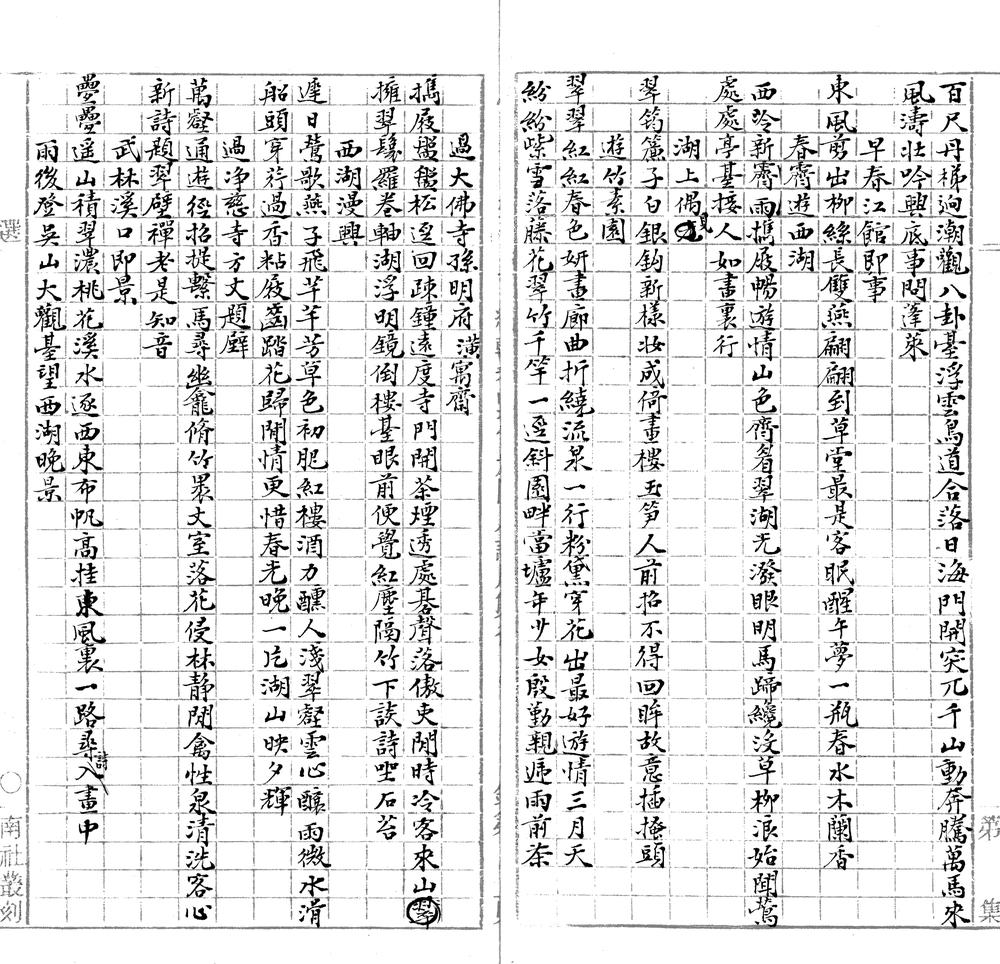 第 一 集
百尺丹梯迥潮觀八卦臺浮雲鳥道合落日海門開突兀千山動奔騰萬馬來
風濤壯吟興底事問蓬萊
早春江館即事
東風剪出柳絲長雙燕翩翩到草堂最是客眠醒午夢一瓶春水木蘭香
春霽遊西湖
西泠新霽雨攜屐暢遊情山色齊眉翠湖光潑眼明馬蹄纔沒草柳浪始聞鶯
處處亭基接人如畫裏行
湖上偶見
翠筠簾子白銀鈎新樣妆成倚畫樓玉笋人前招不得回眸故意插掩頭
遊竹素園
翠翠紅紅春色妍畫廊曲折繞流泉一行粉黛穿花出最好遊情三月天
紛紛紫雪落藤花翠竹千竿一逕斜園畔當壚年少女殷勤親遞雨前茶
過大佛寺孫明府潢寓齋
攜屐盤盤松逕回疎鍾遠度寺門開茶煙透處碁聲落傲吏閒時冷客來山翠
擁翠鬟羅卷軸湖浮明鏡倒樓基眼前便覺紅塵隔竹下談詩坐石苔
西湖漫興
遲日鶯歌燕子飛芊芊芳草色初肥紅樓酒力醺人淺翠壑雲心釀雨微水滑
船頭穿荇過香粘屐齒踏花歸閒情更惜春光晚一片湖山映夕輝
過淨慈寺方丈題壁
萬壑通遊徑招提繫馬尋幽龕脩竹裏丈室落花侵林靜閒禽性泉清洗客心
新詩題翠壁禪老是知音
武林溪口即景
疊疊遥山積翠濃桃花溪水逐西東布帆高挂東風裏一路尋詩入畫中
雨後登吳山大觀基望西湖晚景
選
〇南社叢刻